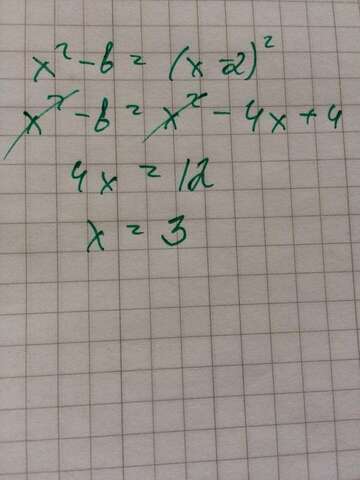 x² - 8 = (x - 2)²
x² - 8 = x² - 4x + 4
4x = 12
x = 3